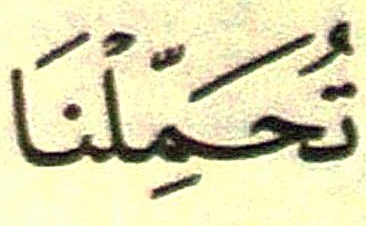 تُحَمِّلْنَا